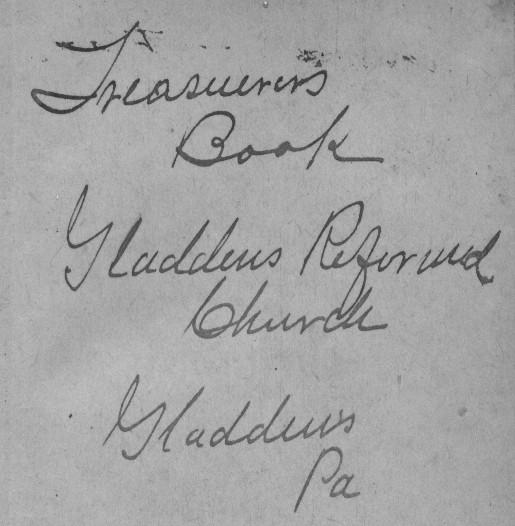 Treasuerers
Book
Gladdens Reformed
Church
Gladdens
Pa